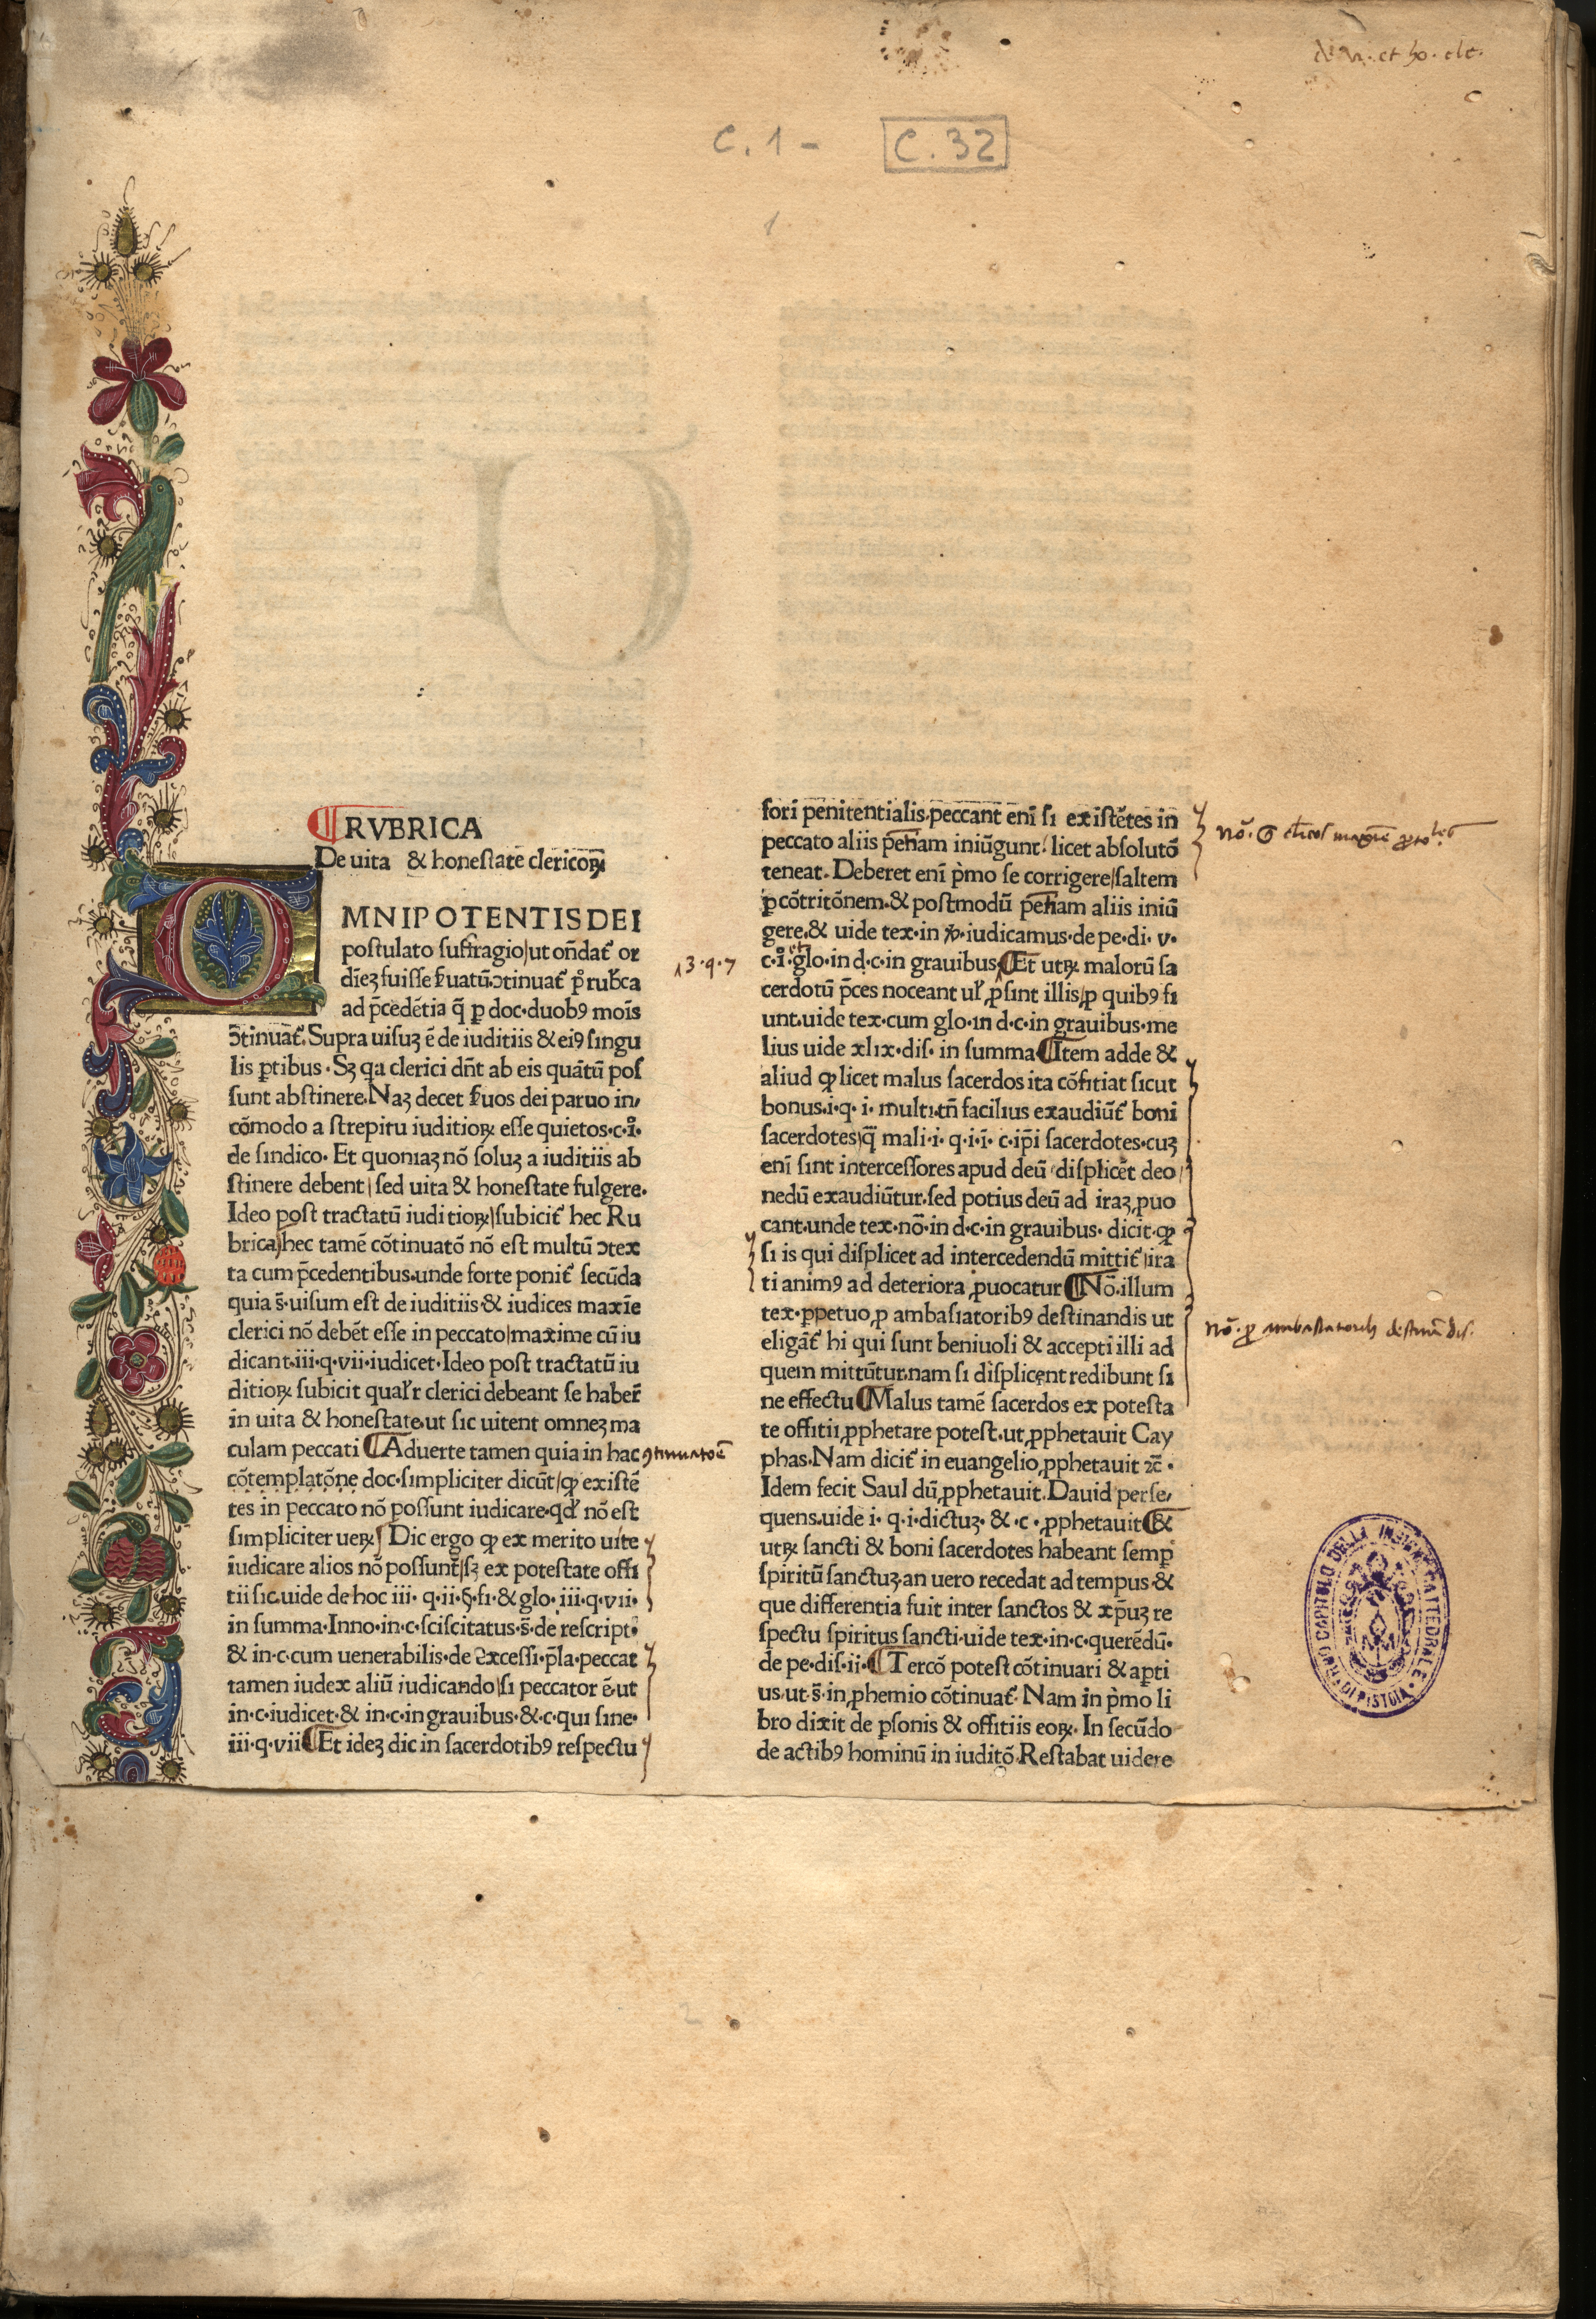 de vi. et ho. cle.
C. 1 - C. 32
1
RVBRICA
De uita & honestate clericoꝝ
OMNIPOTENTIS DEI
postulato suffragio/ut oñdat᷑ or
dīeꝫ fuisse ẜuatū ↄtinuat᷑ pͦ rub̄ca
ad p̄cedētia q̄ ꝑ doc·duobꝰ moīs
ↄ̄tinuat᷑. Supra uisuꝫ ē de iuditiis & eiꝰ singu
lis ꝑtibus · Sꝫ qa clerici dn̄t ab eis quātū pos
sunt abstinere. Naꝫ decet ẜuos dei paruo in,
cōmodo a strepitu iuditioꝝ esse quietos·c·i̊·
de sindico· Et quoniaꝫ nō soluꝫ a iuditiis ab
stinere debent/sed uita & honestate fulgere·
Ideo post tractatū iuditioꝝ/subicit᷑ hec Ru
brica/hec tamē cōtinuatō nō est multū ↄtex
ta cum p̄cedentibus·unde forte ponit᷑ secūda
quia s̄·uisum est de iuditiis & iudices maxīe
clerici nō debēt esse in peccato/maxime cū iu
dicant·iii·q·vii·iudicet·Ideo post tractatū iu
ditioꝝ subicit qualr̄ clerici debeant se haber̄
in uita & honestate·ut sic uitent omneꝫ ma
culam peccati ¶ Aduerte tamen quia in hac
ꝯtinuatōe
cōtemplatōne doc·simpliciter dicūt/ꝙ existē
tes in peccato nō possunt iudicare·qd̄ nō est
simpliciter ueꝝ/ Dic ergo ꝙ ex merito uite
iudicare alios nō possunt/sꝫ ex potestate offi
tii sic·uide de hoc iii· q·ii·§·si·& glo· iii·q·vii·
in summa·Inno·in·c·sciscitatus·s̄·de rescript·
& in·c·cum uenerabilis·de excessi·p̄la·peccat
tamen iudex aliū iudicando/si peccator ē·ut
in·c·iudicet·& in·c·in grauibus·&·c·qui sine·
iii·q·vii ¶ Et ideꝫ dic in sacerdotibꝰ respectu
fori penitentialis·peccant enī si existētes in
peccato aliis penīam iniūgunt/ licet absolutō
teneat· Deberet enī p̓mo se corrigere/saltem
ꝑ cōtritōnem·& postmodū penīam aliis iniū
gere·& uide tex·in ꝟ·iudicamus·de pe·di· v·
c·i̊· et glo·in d·c·in grauibus· ¶ Et utꝝ malorū sa
13·q·7
cerdotū p̄ces noceant ul̄ ꝓsint illis/ꝓ quibꝰ fi
unt·uide tex·cum glo·in d·c·in grauibus·me
lius uide xlix·dis· in summa ¶ Item adde &
aliud ꝙ licet malus sacerdos ita cōfitiat sicut
bonus·i·q· i· multi·tn̄ facilius exaudiūt᷑ boni
sacerdotes/q̄ mali·i· q·i·i· c·ip̄i sacerdotes·cuꝫ
enī sint intercessores apud deū/displicēt deo/
nedū exaudiūtur·sed potius deū ad iraꝫ ꝓuo
cant·unde tex·nō·in d·c·in grauibus· dicit·ꝙ
si is qui displicet ad intercedendū mittit᷑/ira
ti animꝰ ad deteriora ꝓuocatur ¶ Nō·illum
tex·ꝑpetuo ꝓ ambasiatoribꝰ destinandis ut
eligāt᷑ hi qui sunt beniuoli & accepti illi ad
quem mittūtur·nam si displicent redibunt si
ne effectu ¶ Malus tamē sacerdos ex potesta
te offitii ꝓphetare potest·ut ꝓphetauit Cay
phas·Nam dicit᷑ in euangelio ꝓphetauit ⁊c̄·
Idem fecit Saul dū ꝓphetauit·Dauid perse,
quens·uide i· q·i·dictuꝫ· &·c·ꝓphetauit ¶ &
utꝝ sancti & boni sacerdotes habeant semꝑ
spiritū sanctuꝫ·an uero recedat ad tempus·&
que differentia fuit inter sanctos & xp̄uꝫ re
spectu spiritus sancti·uide tex·in·c·querēdū·
de pe·dis·ii· ¶ Tercō potest cōtinuari & apti
us·ut·s̄·in ꝓhemio cōtinuat᷑· Nam in p̓mo li
bro dixit de ꝑsonis & offitiis eoꝝ· In secūdo
de actibꝰ hominū in iuditō·Restabat uidere
nō· ꝓ ambasiatoribꝰ destinādis·
CAPITOLO DELLA INSIGNE CATTEDRALE DI PISTOIA
2